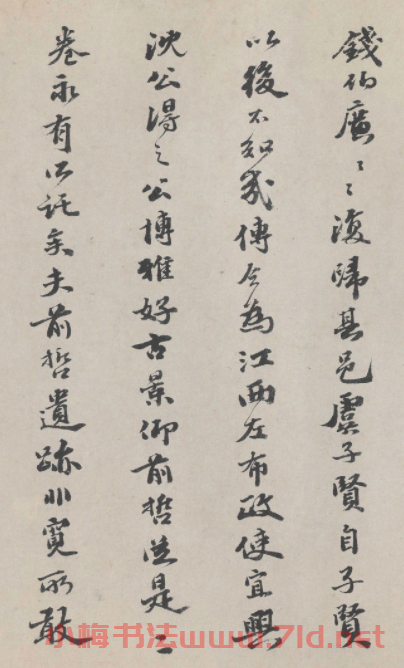 錢伯廣〻〻復歸其邑虞子賢自子賢
以後不知幾傳今為江西左布政使宜興
沈公得之公博雅好古景仰前哲從是二
卷永有所託矣夫前哲遺跡非寬所敢
小梅书法www.7ld.net